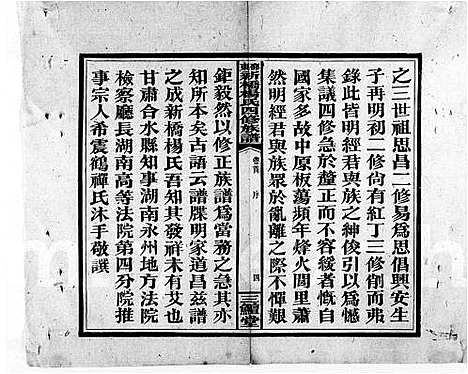 之三世祖思昌二修易爲思倡興安生
子再明初二修尙有紅丁三修削而弗
錄此皆明經君與族之紳俊引以爲憾
集議四修急於釐正而緩者慨自
國家多故中原板蕩頻年烽火閭里蕭
然明經君與族眾於亂離之際不憚艱
新橋楊氏四修族譜
卷首
序
四
三鱣堂
鉅毅然以修正族譜爲當務之急其亦
知所本矣古語云譜牒明家道昌茲譜
之成新橋楊氏吾知其發祥未有艾也
甘肅合水縣知事湖南永州地方法院
檢察廳長湖南高等法院第四分院推
事宗人希震鶴禪氏沐手敬譔